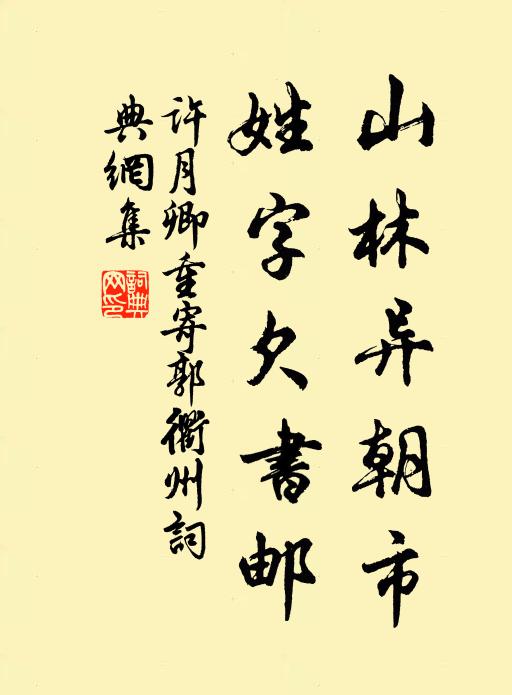 山林异朝市
姓字久書邮
许月卿重寄郭衢州詞
典網集
詞典网印